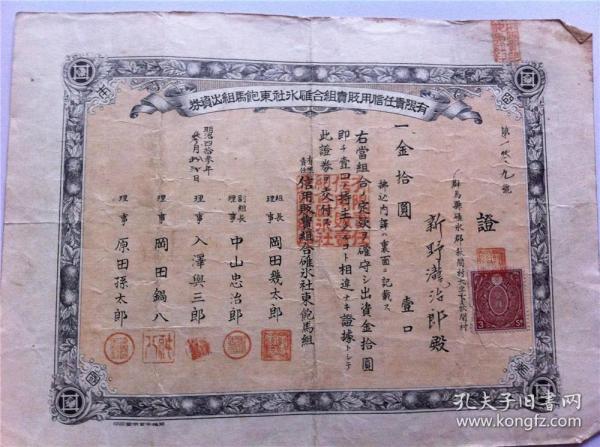 有限責任信用販賣組合碓氷社東飽馬組出資券
證
群馬縣碓氷郡秋間村大字下秋間村
新野瀧治郎殿
一金拾圓 壹口
拂込内譯ハ裏面ニ記載ス
右當組合ノ定款ヲ確守シ出資金拾圓
即チ壹口ノ持主タルコト相違ナキ證據トシテ
此證券ヲ交付ス
明治四拾參年
有限責任信用販賣組合碓氷社東飽馬組
組長理事 岡田幾太郎
副組長理事 中山忠治郎
理事 入澤與三郎
理事 岡田鍋八
理事 原田孫太郎
孔夫子旧书网
kongfz.com